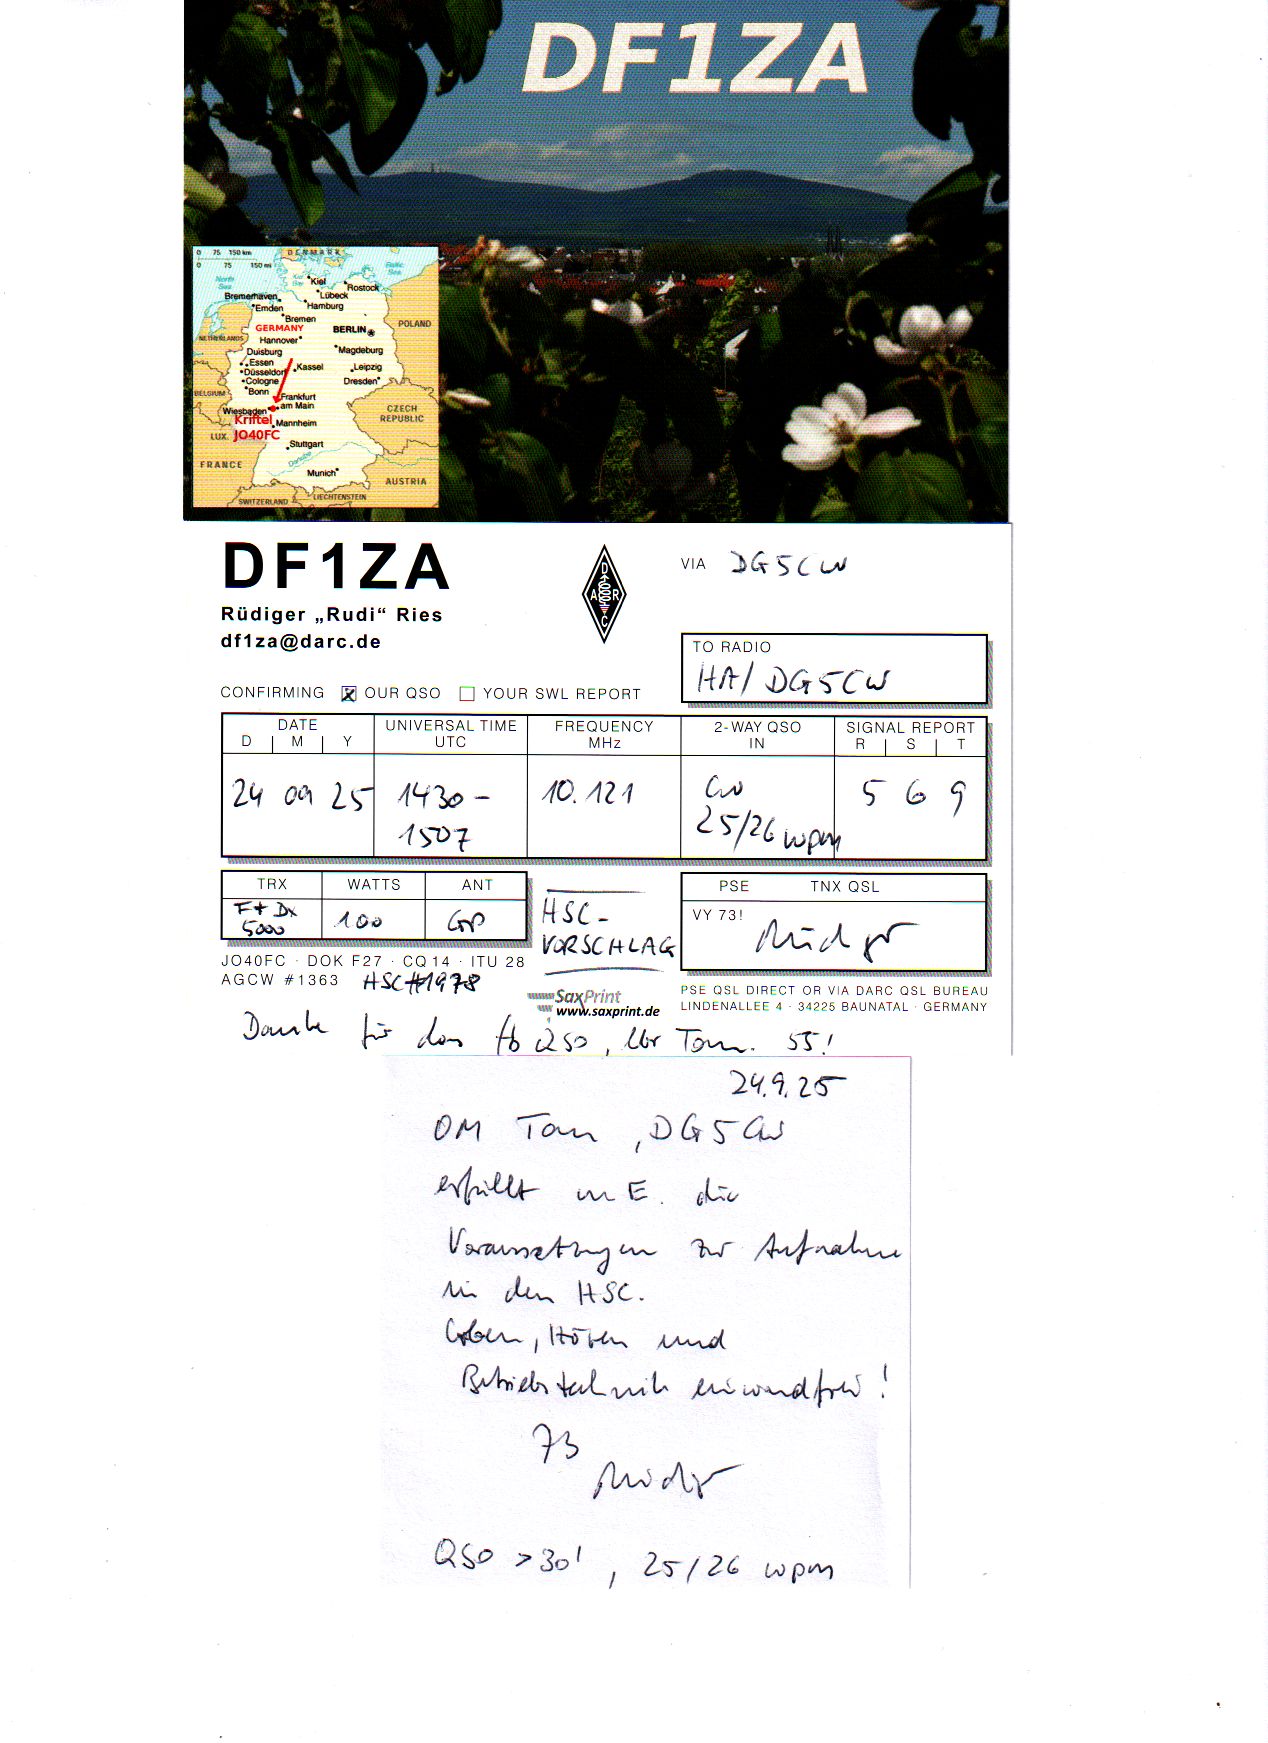 DF1ZA
0 75 150 km
0 75 150 mi
DENMARK
North Sea
Baltic Sea
Kiel
Rostock
Lübeck
Bremerhaven
Hamburg
Emden
Bremen
POLAND
GERMANY
BERLIN
NETHERLANDS
Hannover
Duisburg
Magdeburg
Essen
Düsseldorf
Kassel
Leipzig
Cologne
Dresden
Bonn
BELGIUM
Frankfurt
am Main
Wiesbaden
CZECH
REPUBLIC
Kriftel
Mannheim
LUX.
JO40FC
Stuttgart
Danube
FRANCE
Munich
AUSTRIA
SWITZERLAND
LIECHTENSTEIN
DF1ZA
VIA DG5CW
Rüdiger „Rudi“ Ries
df1za@darc.de
D
A R
C
TO RADIO
HA/DG5CW
CONFIRMING X OUR QSO YOUR SWL REPORT
DATE UNIVERSAL TIME FREQUENCY 2-WAY QSO SIGNAL REPORT
D M Y UTC MHz IN R S T
24 09 25 1430 – 10.121 CW 5 6 9
1507 25/26 wpm
TRX WATTS ANT
FT DX 100 GP
5000
HSC-
VORSCHLAG
PSE TNX QSL
VY 73!
Rüdiger
JO40FC · DOK F27 · CQ 14 · ITU 28
AGCW #1363 HSC#1978
SaxPrint
www.saxprint.de
PSE QSL DIRECT OR VIA DARC QSL BUREAU
LINDENALLEE 4 · 34225 BAUNATAL · GERMANY
Danke für das fb QSO, lbr Tom. 55!
24.9.25
OM Tom, DG5CW
erfüllt m E. die
Voraussetzungen zur Aufnahme
in den HSC.
Geben, Hören und
Betriebstechnik einwandfrei!
73
Rüdiger
QSO >30', 25/26 wpm